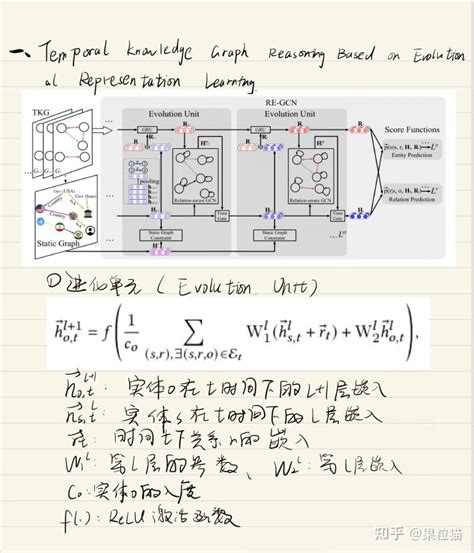 一、Temporal Knowledge Graph Reasoning Based on Evolution
al Representation Learning.
TKG
RE-GCN
Evolution Unit
Evolution Unit
Score Functions
GRU
GRU
pooling
Entity Prediction
Relation Prediction
Relation-aware GCN
Relation-aware GCN
Time Gate
Time Gate
Gov (USA)
Gov (Iran)
Static Graph
Static Graph Constraint
Static Graph Constraint
①进化单元 ( Evolution Unit)
$\vec{h}_{o,t}^{l+1} = f\left(\frac{1}{c_o} \sum_{(s,r),\exists(s,r,o)\in\mathcal{E}_t} W_1^l(\vec{h}_{s,t}^l + \vec{r}_t) + W_2^l\vec{h}_{o,t}^l\right),$
$\vec{h}_{o,t}^{l+1}$: 实体o在t时间下的l+1层嵌入
$\vec{h}_{s,t}^{l}$: 实体s在t时间下的l层嵌入
$\vec{r}_t$: 时间t下关系r的嵌入
$W_1^l$: 第l层的参数、$W_2^l$: 第l层嵌入
Co: 实体o的入度
f(.): ReLU激活函数
知乎 @果粒猫